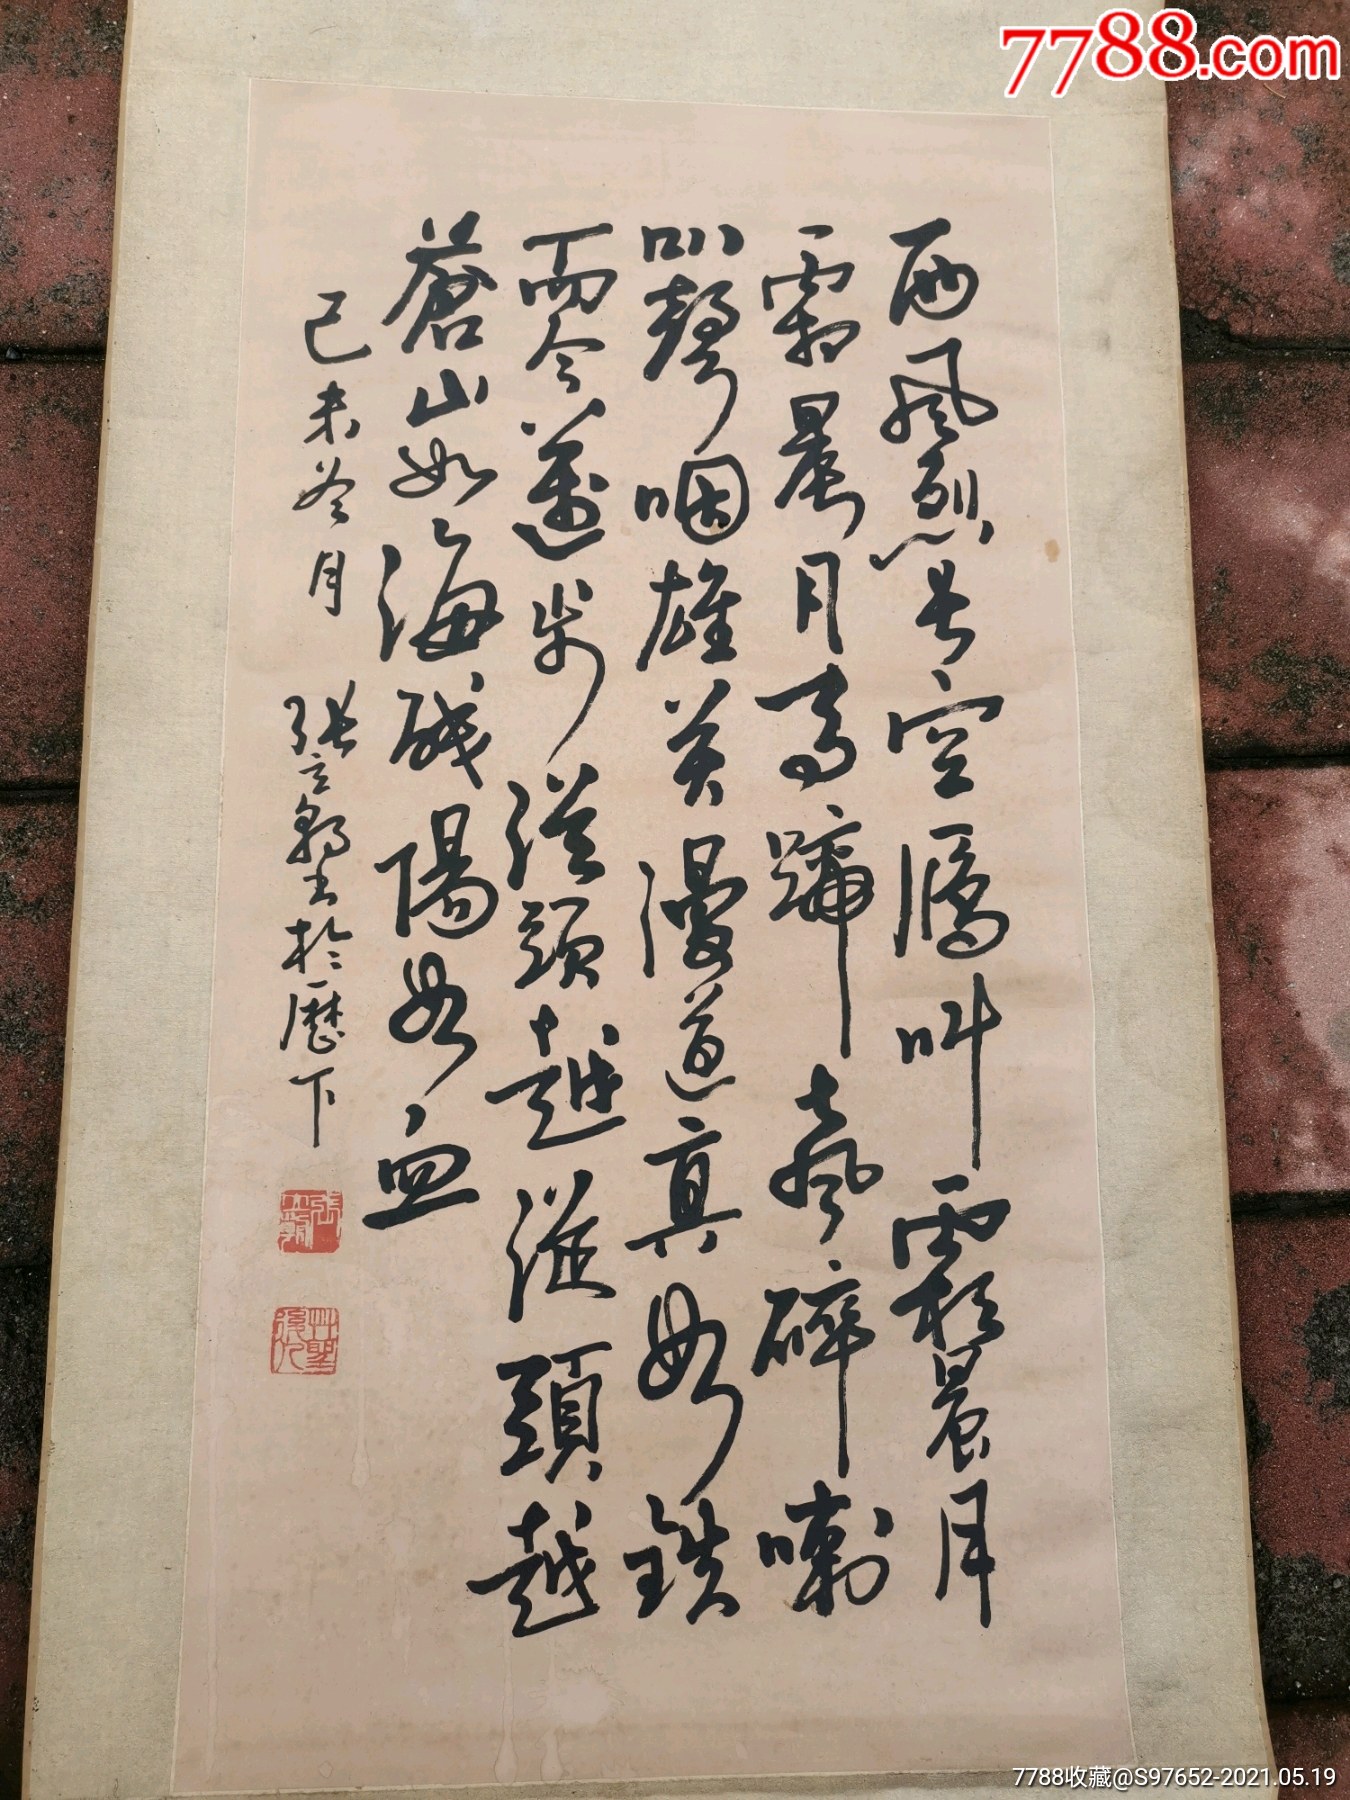 7788.com
西風烈长空鴈叫霜晨月
霜晨月馬蹄聲碎喇
叭聲咽雄關漫道真如鐵
而今邁步從頭越從頭越
蒼山如海殘陽如血
己未冬月 张立朝书於歷下
艸聖後人
7788收藏@S97652-2021.05.19